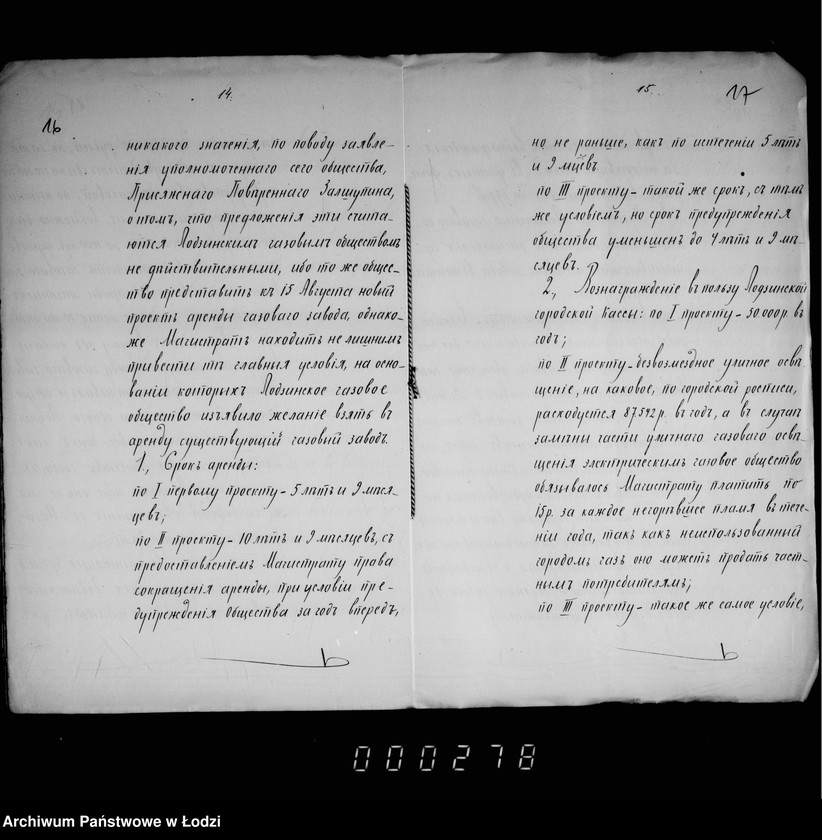 14.
16
никакого значенія, по поводу заявле-
нія уполномоченнаго сего общества,
Присяжнаго Повѣреннаго Залшупина,
о томъ, что предложенія эти счита-
ются Лодзинскимъ газовымъ обществомъ
не дѣйствительными, ибо то же общес-
тво представитъ къ 15 Августа новый
проектъ аренды газоваго завода, однако-
же Магистратъ находитъ не лишнимъ
привести тѣ главныя условія, на осно-
ваніи которыхъ Лодзинское газовое
общество изъявило желаніе взять въ
аренду существующій газовый заводъ.
1., Срокъ аренды:
по I первому проекту - 5 лѣтъ и 9 мѣся-
цевъ;
по II проекту - 10 лѣтъ и 9 мѣсяцевъ, съ
предоставленіемъ Магистрату права
сокращенія аренды, при условіи пре-
дупрежденія Общества за годъ впередъ,
15.
17
но не раньше, какъ по истеченіи 5 лѣтъ
и 9 мцевъ
по III проекту - такой же срокъ, съ тѣмъ
же условіемъ, но срокъ предупрежденія
общества уменшенъ до 4 лѣтъ и 9 мѣ-
сяцевъ.
2., Вознагражденіе въ пользу Лодзинской
городской Кассы: по I проекту - 50000 р. въ
годъ;
по II проекту - безвозмездное уличное освѣ-
щеніе, на каковое, по городской росписи,
расходуется 87542 р. въ годъ, а въ случаѣ
замѣны части уличнаго газоваго освѣ-
щенія электрическимъ газовое общество
обязывалось Магистрату платить по
15 р. за каждое негорѣвшее пламя въ тече-
ніи года, такъ какъ неиспользованный
городомъ газъ оно можетъ продать част-
нымъ потребителямъ;
по III проекту - такое же самое условіе,
000278
Archiwum Państwowe w Łodzi